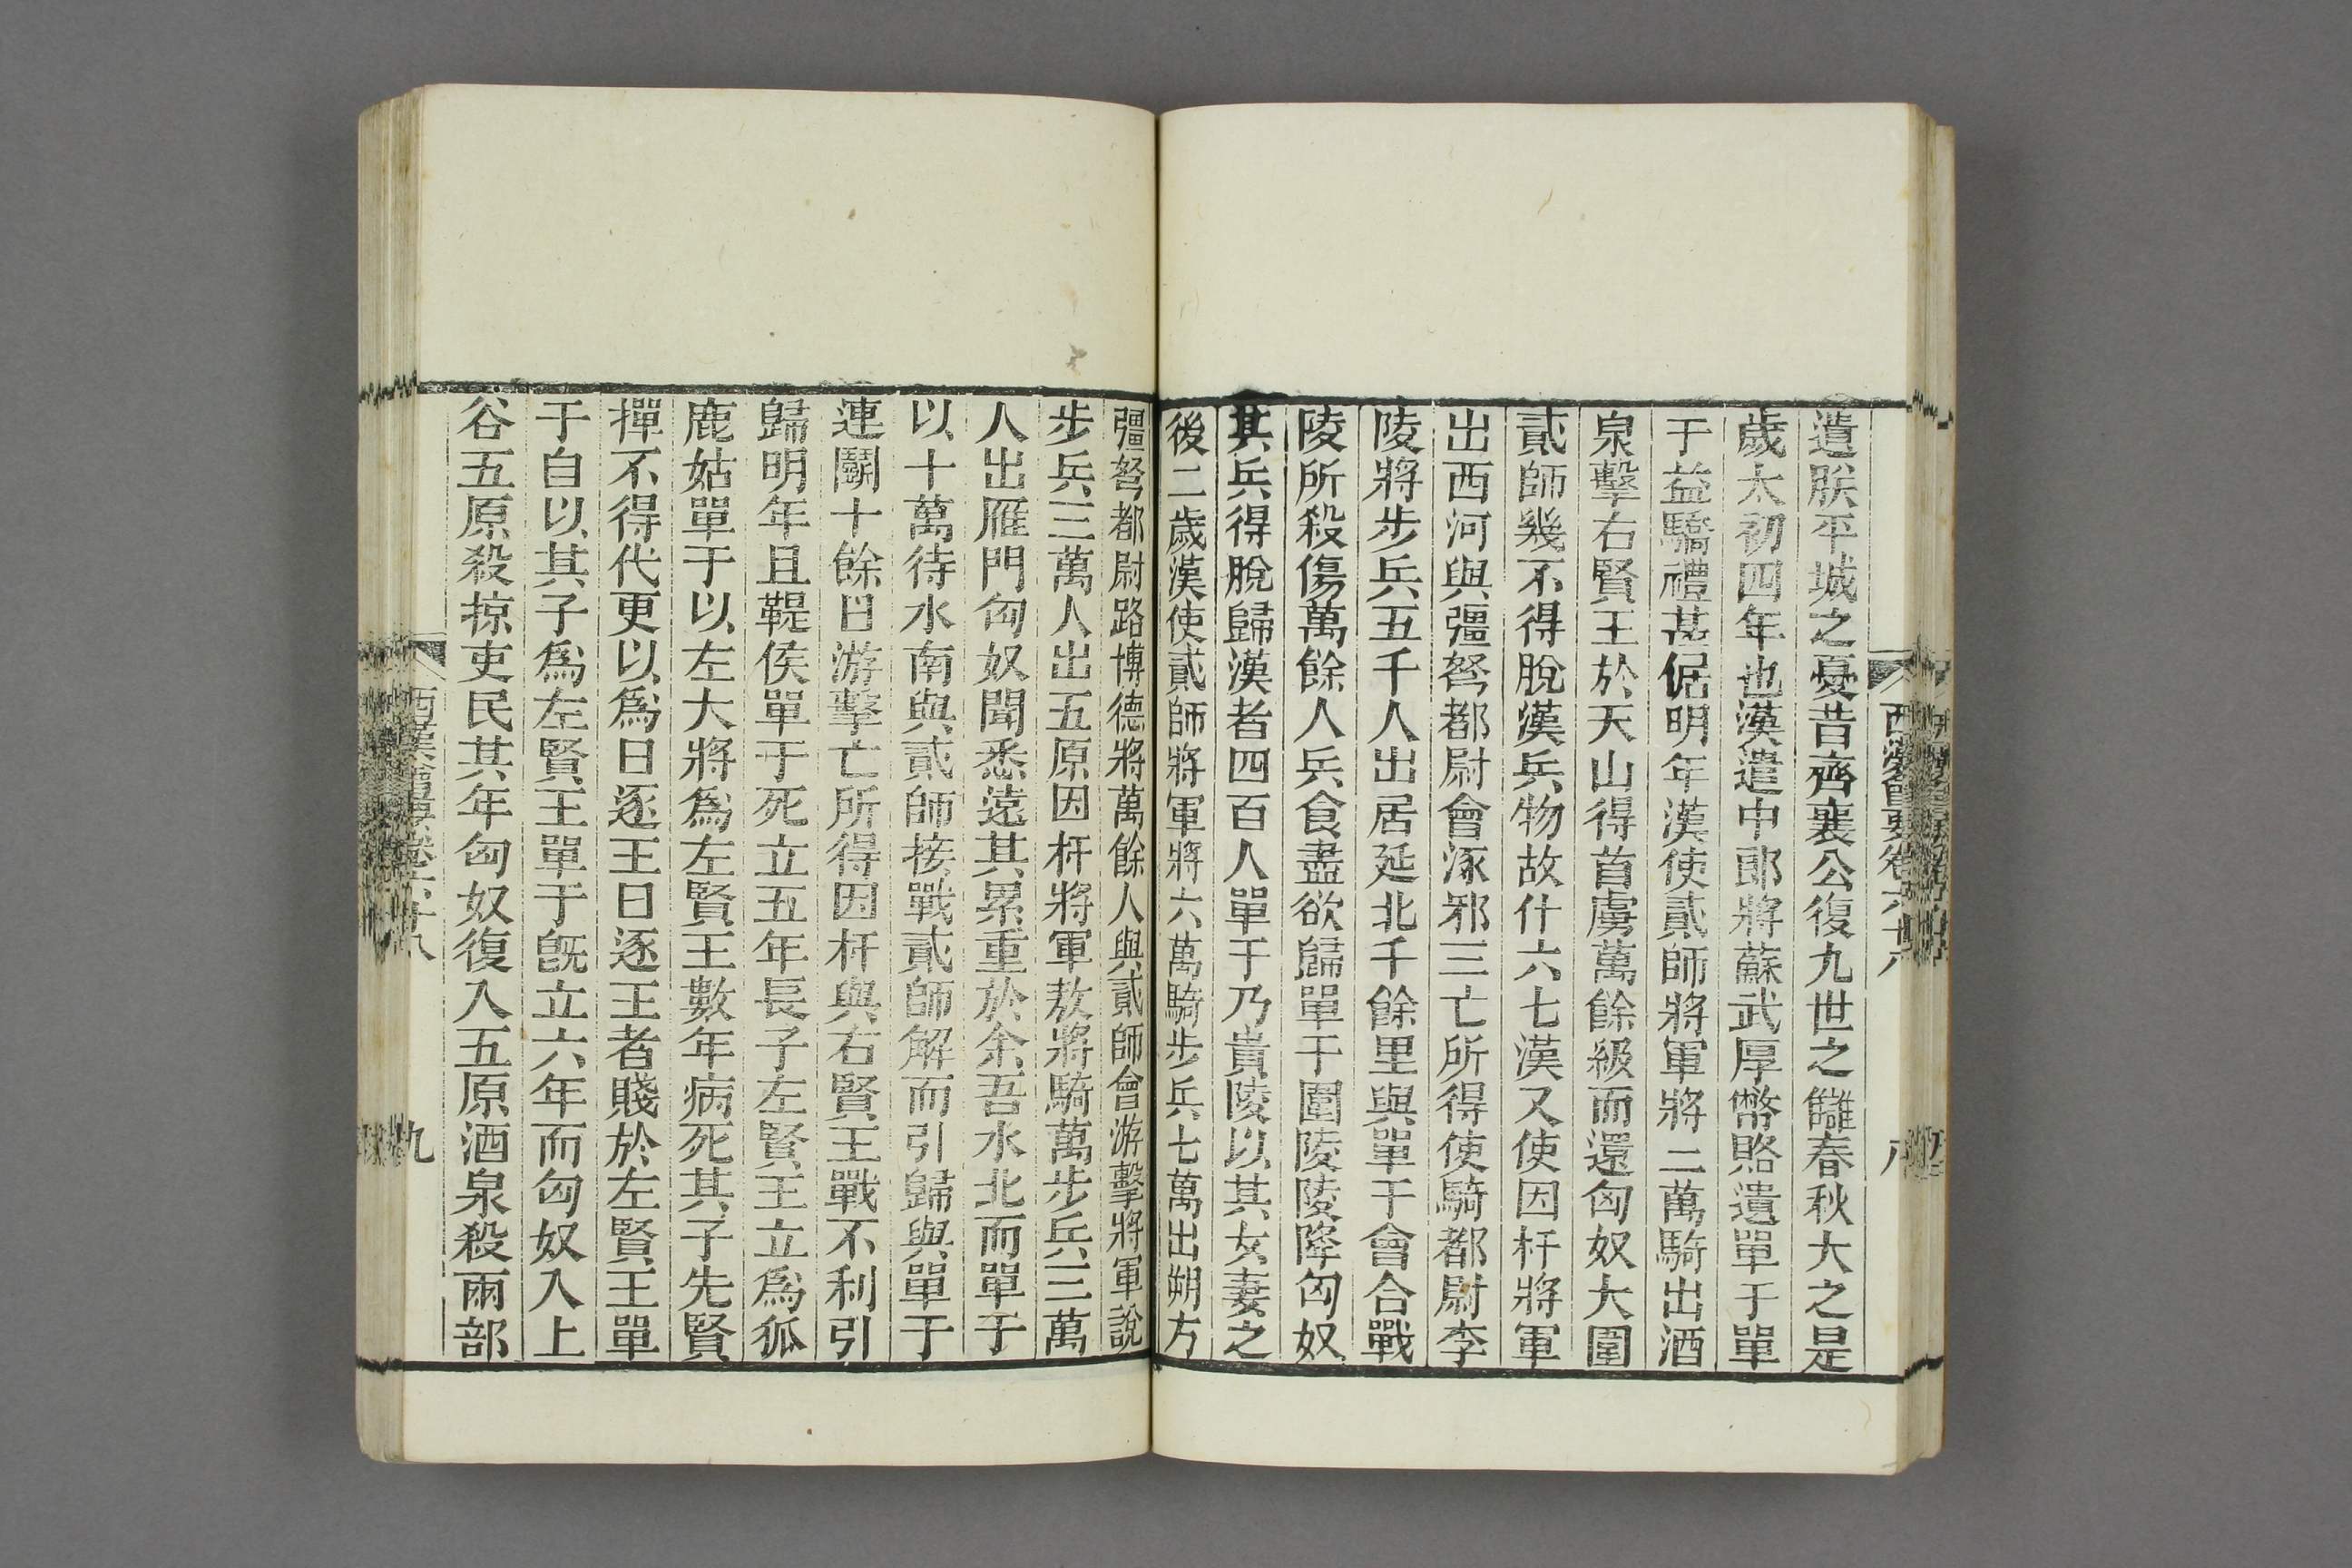 西漢會要卷六十八
八
遺朕平城之憂昔齊襄公復九世之讎春秋大之是
歲太初四年也漢遣中郎將蘇武厚幣賂遺單于單
于益驕禮甚倨明年漢使貳師將軍將二萬騎出酒
泉擊右賢王於天山得首虜萬餘級而還匈奴大圍
貳師幾不得脫漢兵物故什六七漢又使因杅將軍
出西河與彊弩都尉會涿邪三亡所得使騎都尉李
陵將步兵五千人出居延北千餘里與單于會合戰
陵所殺傷萬餘人兵食盡欲歸單于圍陵陵降匈奴
其兵得脫歸漢者四百人單于乃貴陵以其女妻之
後二歲漢使貳師將軍將六萬騎步兵七萬出朔方
彊弩都尉路博德將萬餘人與貳師會游擊將軍說
步兵三萬人出五原因杅將軍敖將騎萬步兵三萬
人出雁門匈奴聞悉遠其累重於余吾水北而單于
以十萬待水南與貳師接戰貳師解而引歸與單于
連鬭十餘日游擊亡所得因杅與右賢王戰不利引
歸明年且鞮侯單于死立五年長子左賢王立爲狐
鹿姑單于以左大將爲左賢王數年病死其子先賢
撣不得代更以爲日逐王日逐王者賤於左賢王單
于自以其子爲左賢王單于旣立六年而匈奴入上
谷五原殺掠吏民其年匈奴復入五原酒泉殺兩部
西漢會要卷六十八
九